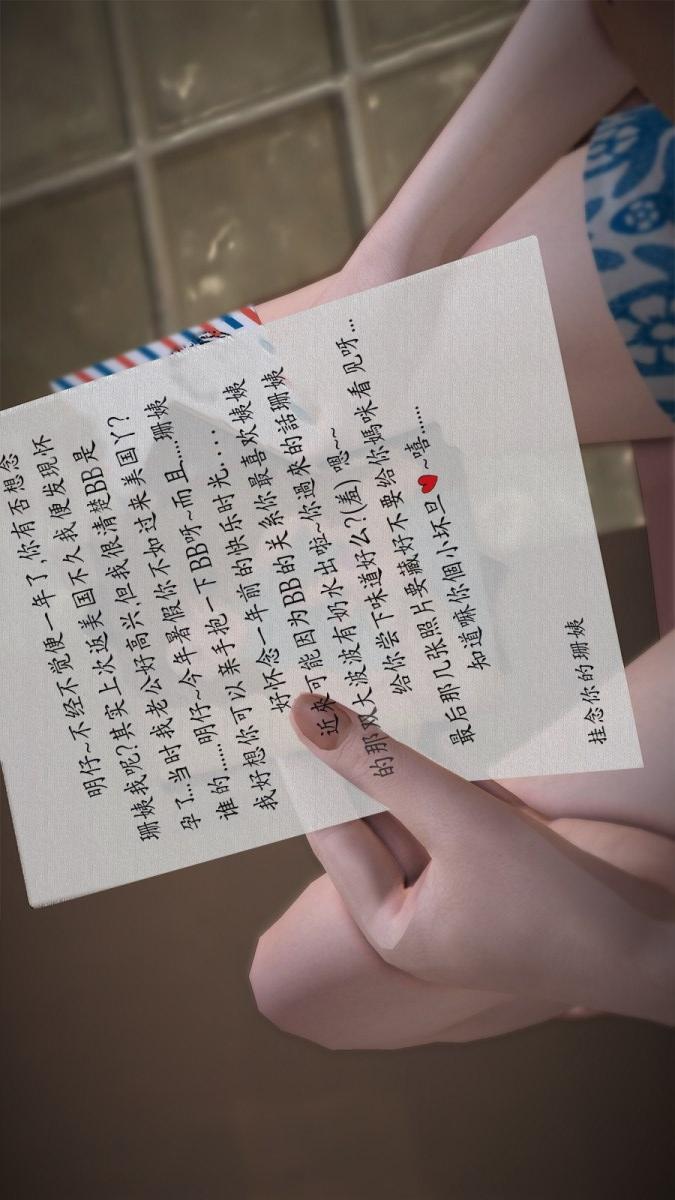 明仔~不经不觉便一年了,你有否想念
珊姨我呢?其实上次返美国不久我便发現怀
孕了...当时我老公好高兴,但我很清楚BB是
谁的......明仔~今年暑假你不如过来美国丫?
我好想你可以亲手抱一下BB呀~而且.....珊姨
好怀念一年前的快乐时光....
近來可能因为BB的关系你最喜欢姨姨
的那双大波波有奶水出啦~你過来的話珊姨
给你尝下味道好么?(羞) 嗯~~
最后那几张照片要藏好不要给你媽咪看見呀...
知道嘛你個小坏旦♥~嘻.....
挂念你的珊姨